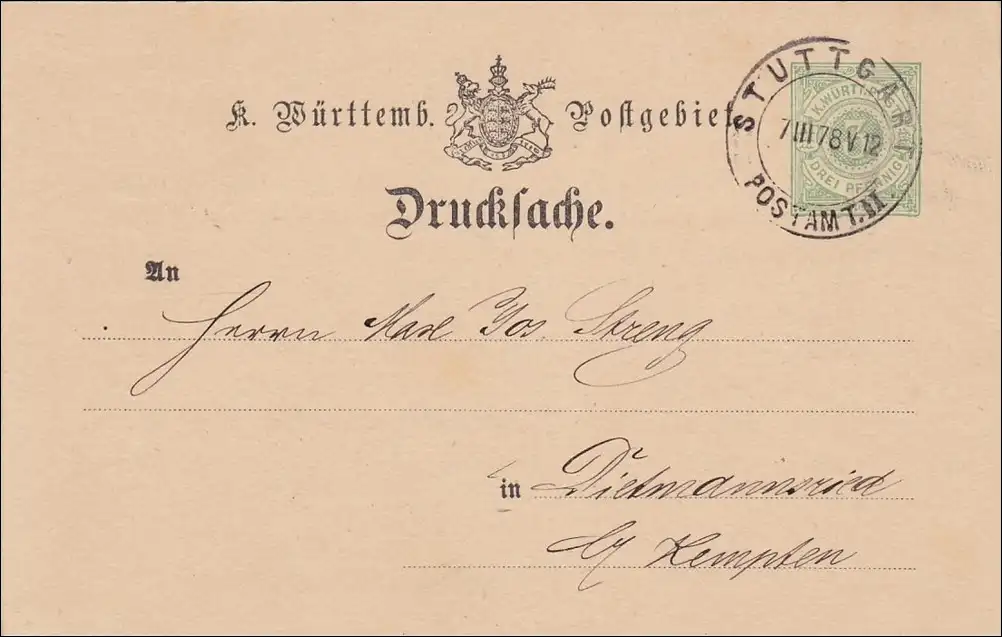 K. Württemb. Postgebiet
STUTTGART
7 III 78 V 12
POSTAMT. II
K. WÜRTT. POST
DREI PFENNIG
Drucksache.
An
Herrn Max Jos. Streng
in Dietmannsried
b/ Kempten